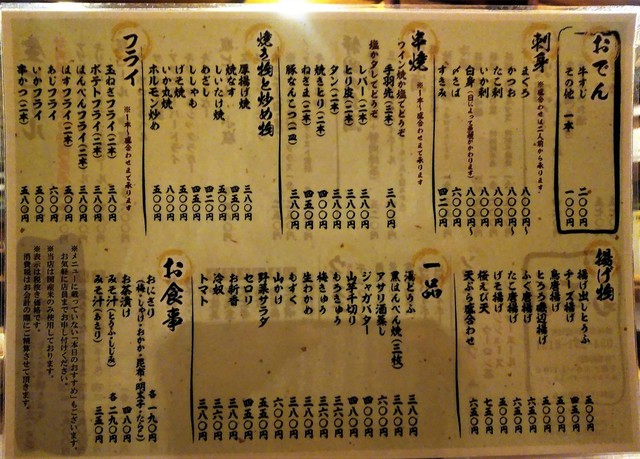 おでん
牛すじ 二〇〇円
その他 一本 一〇〇円
刺身
※盛合わせは二人前から承ります
まぐろ 八〇〇円〜
かつお 八〇〇円〜
たこ刺 八〇〇円
いか刺 八〇〇円
白身 八〇〇円〜
〆さば 六〇〇円
すきみ 四二〇円
串焼
※一本〜盛合わせまで承ります
ワイン焼か塩でどうぞ
手羽先(二本) 三八〇円
塩かタレでどうぞ
レバー(二本) 三八〇円
とり皮(二本) 三八〇円
タン(二本)
焼きとり(二本) 四〇〇円
ねぎま(二本) 四五〇円
豚なんこつ(二本) 三八〇円
焼き物と炒め物
厚揚げ焼 三八〇円
焼なす 四五〇円
しいたけ焼 五〇〇円
めざし 四二〇円
ししゃも 五〇〇円
げそ焼 五〇〇円
いか丸焼 八〇〇円
ホルモン炒め 五〇〇円
フライ
※一本〜盛合わせまで承ります
玉ねぎフライ(二本) 三八〇円
ポテトフライ(二本) 三八〇円
はんぺんフライ(二本)
はすフライ(二本)
あじフライ 六〇〇円
いかフライ 五〇〇円
串かつ(二本) 五八〇円
揚げ物
揚げ出しとうふ 五〇〇円
チーズ揚げ
鳥唐揚げ
とろろ磯辺揚げ
ふぐ唐揚げ
たこ唐揚げ
げそ揚げ
桜えび天
天ぷら盛合わせ
一品
湯とうふ 三八〇円
黒はんぺん焼(三枚) 三八〇円
アサリ酒蒸し
ジャガバター 四〇〇円
山芋千切り
もろきゅう
梅きゅう
生わかめ
もずく 三八〇円
山かけ 六〇〇円
野菜サラダ 五五〇円
セロリ
お新香
冷奴
トマト 三八〇円
お食事
おにぎり 各一九〇円
(梅・しゃけ・おかか・昆布・明太子・たらこ)
お茶漬け 四八〇円
みそ汁(とうふ・しじみ) 各二九〇円
みそ汁(あさり) 三五〇円
※メニューに載っていない「本日のおすすめ」もございます。
お気軽に店員までお申し付けください。
※当店は国産米のみ使用しております。
※表示は税抜き価格です。
消費税はお会計の際にご精算させて頂きます。